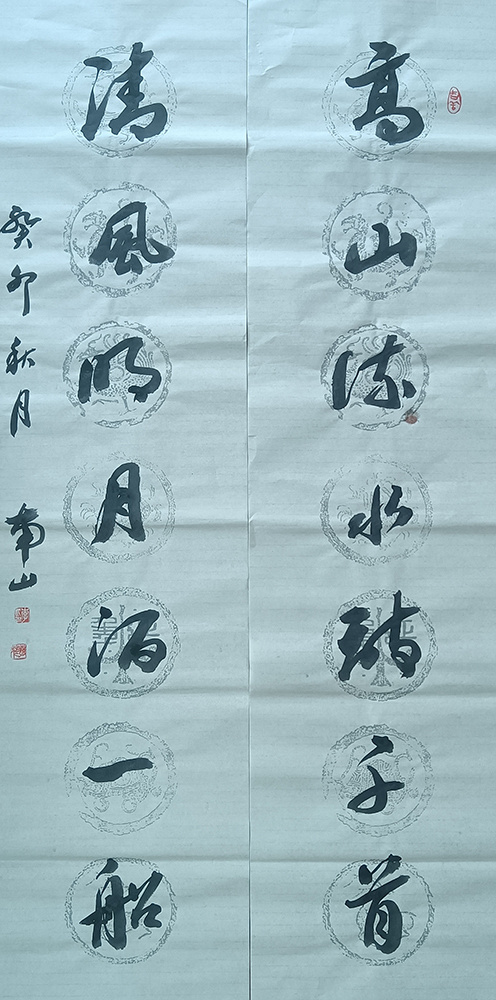 高山流水诗千首
清风明月酒一船
癸卯秋月 南山